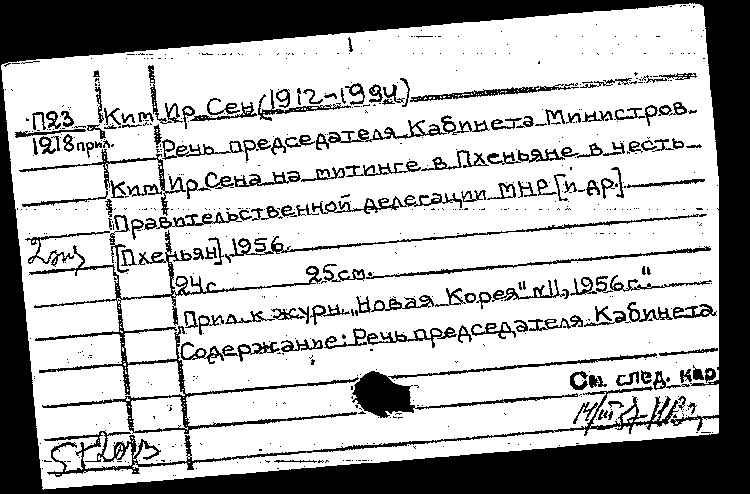 1
П23 Ким Ир Сен (1912-1994)
1218 прил. Речь председателя Кабинета Министров
Ким Ир Сена на митинге в Пхеньяне в честь
Правительственной делегации МНР [и др.]
2 экз [Пхеньян], 1956.
24 с. 25 см.
"Прил. к журн. "Новая Корея" №11, 1956 г."
Содержание: Речь председателя Кабинета
См. след. кар